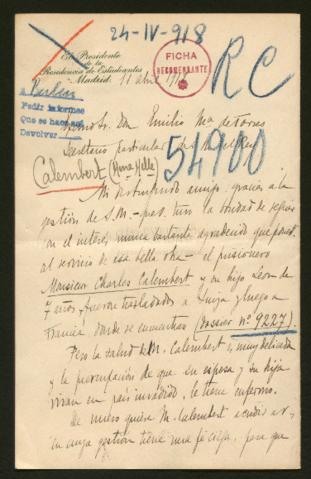 24-IV-918
El Presidente
de la
Residencia de Estudiantes
Madrid.
11 abril 1918
FICHA
RECOMENDANTE
RC
a Berlín
Pedir informes
Que se hace así
Devolver
Sr. Don Emilio Mª de Torres
Secretario particular de S. M. el Rey
54900
Calembert (Mme & Melle)
Mi distinguido amigo: gracias a la
gestión de S.M. - que tuvo la bondad de
en el interés nunca bastante agradecido que pone
al servicio de esa bella obra - el prisionero
Monsieur Charles Calembert y su hijo Leon de
7 años fueron trasladados a Suiza y luego a
Francia donde se encuentran (Dossier nº 9227).
Pero la salud de M. Calembert es muy delicada
y la preocupación de que su esposa y su hija
vivan en país invadido, le tiene enfermo.
De nuevo quiere M. Calembert acudir a
en cuya gestión tiene una fe ciega, para que